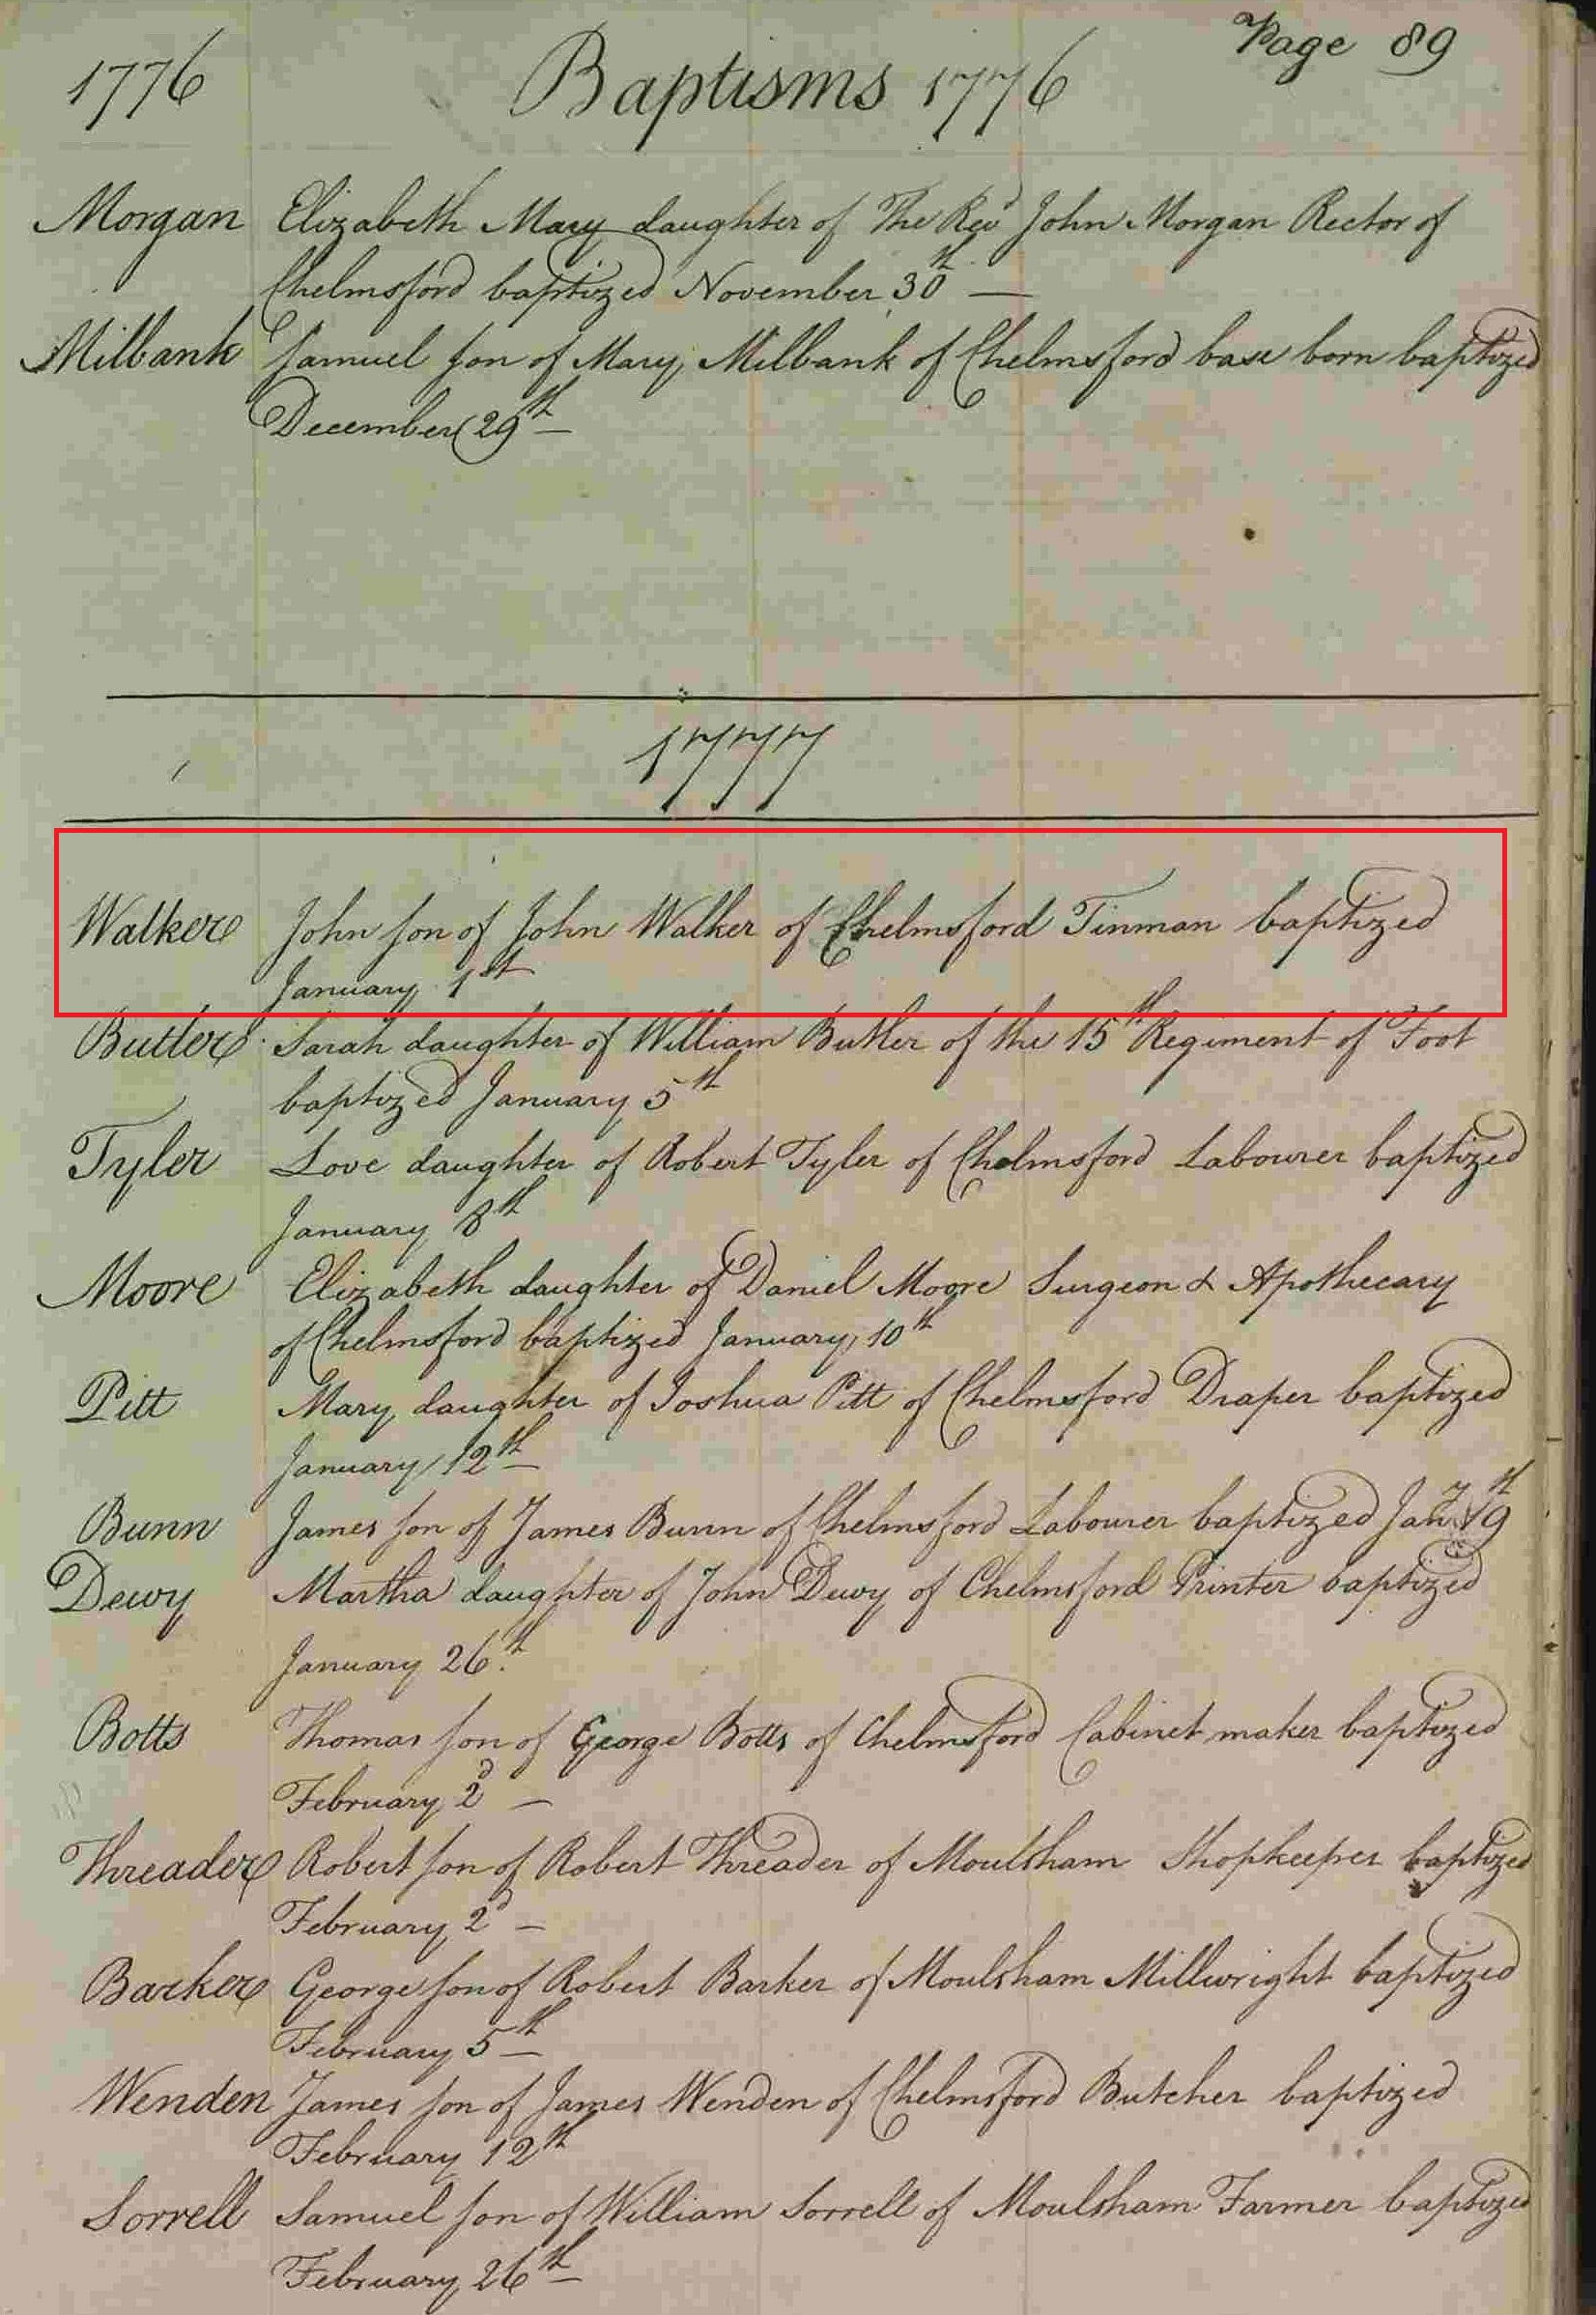 Page 89
1776 Baptisms 1776
Morgan Elizabeth Mary daughter of The Revd John Morgan Rector of
Chelmsford baptized November 30th —
Milbank Samuel son of Mary Milbank of Chelmsford base born baptized
December 29th —
1777
Walker John son of John Walker of Chelmsford Tinman baptized
January 1st
Butler Sarah daughter of William Butler of the 15th Regiment of Foot
baptized January 5th
Tyler Love daughter of Robert Tyler of Chelmsford Labourer baptized
January 8th
Moore Elizabeth daughter of Daniel Moore Surgeon & Apothecary
of Chelmsford baptized January 10th
Pitt Mary daughter of Joshua Pitt of Chelmsford Draper baptized
January 12th
Bunn James son of James Bunn of Chelmsford Labourer baptized Jany 19th
Dewy Martha daughter of John Dewy of Chelmsford Printer baptized
January 26th
Botts Thomas son of George Botts of Chelmsford Cabinet maker baptized
February 2d —
Threader Robert son of Robert Threader of Moulsham Shopkeeper baptized
February 2d —
Barker George son of Robert Barker of Moulsham Millwright baptized
February 5th —
Wenden James son of James Wenden of Chelmsford Butcher baptized
February 12th
Sorrell Samuel son of William Sorrell of Moulsham Farmer baptized
February 26th —